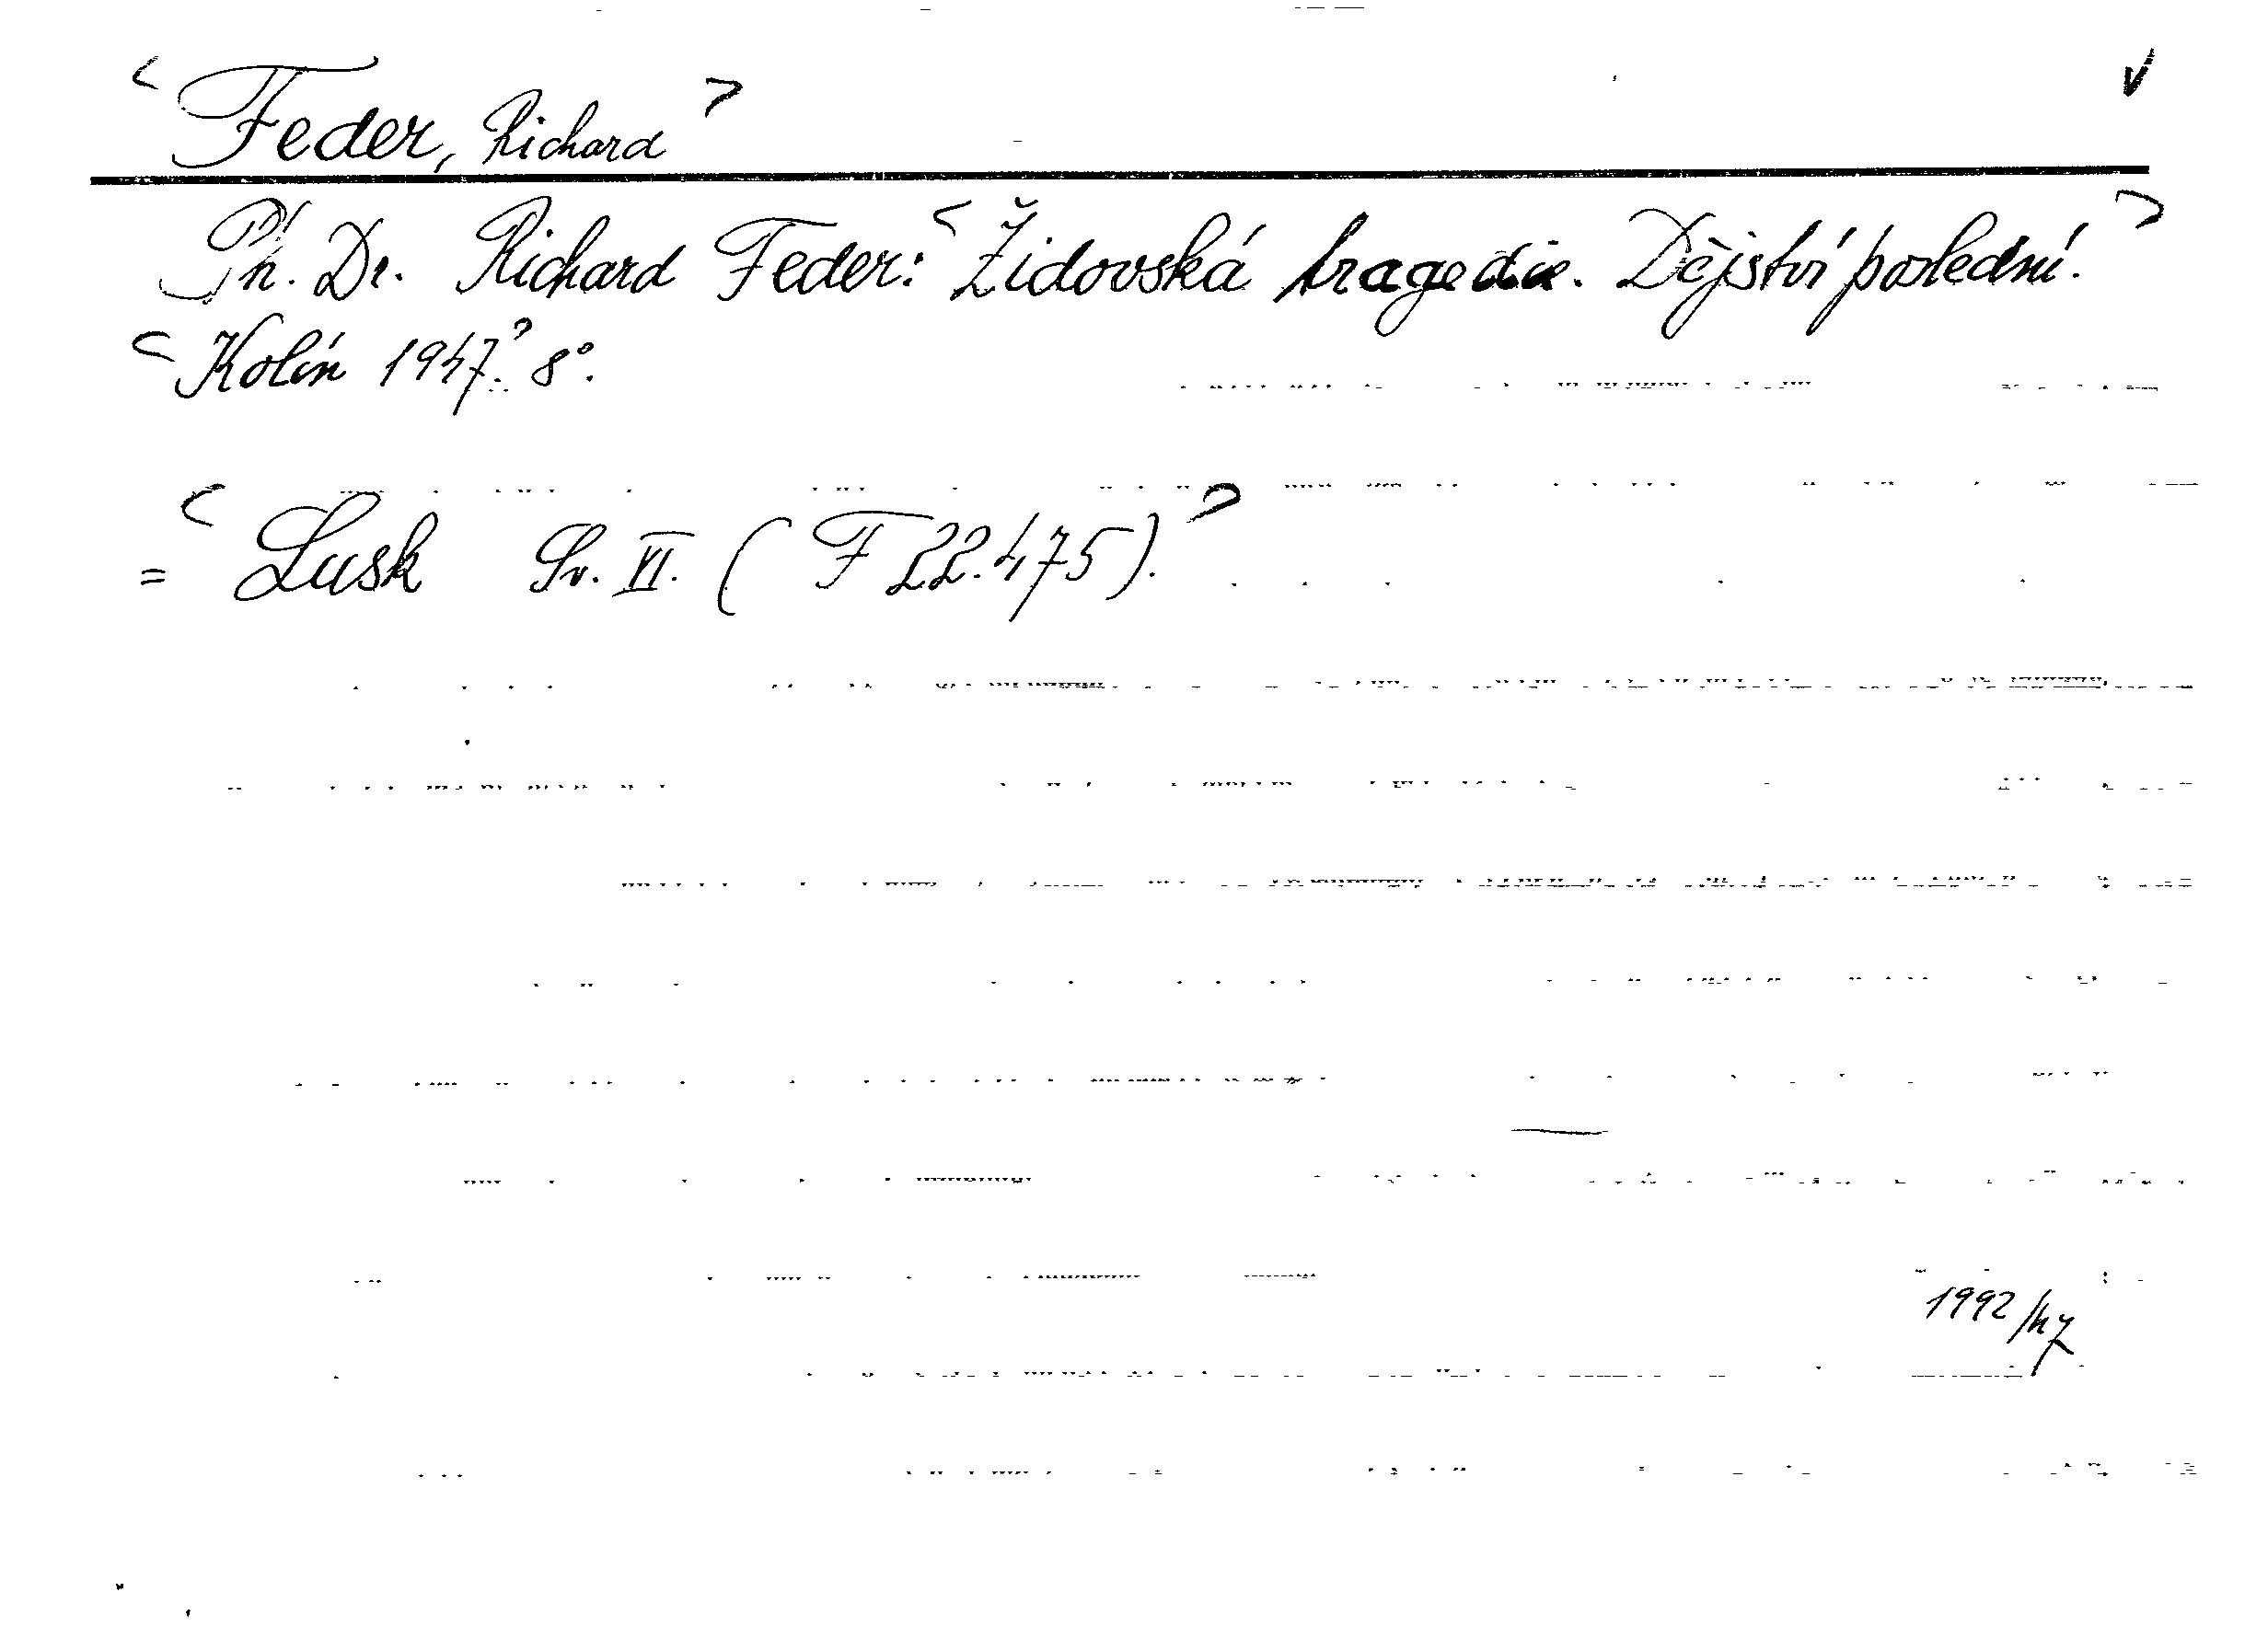 < Feder, Richard > v
Ph. Dr. Richard Feder: < Židovská tragedie. Dějství poslední. >
< Kolín 1947. > 8°.
= < Lusk Sv. VI. ( F 22.475). >
1992/47